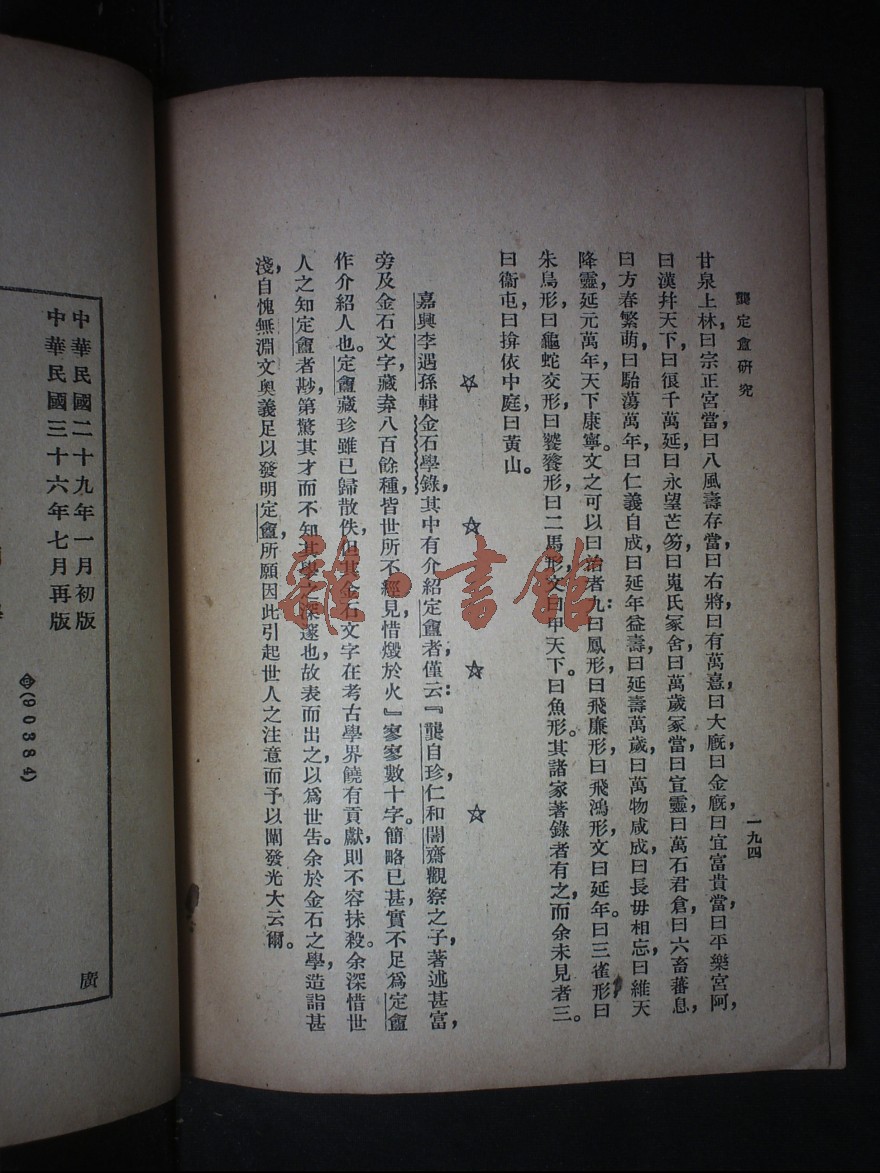 龔定盦研究
一九四
甘泉上林,曰宗正宮當,曰八風壽存當,曰右將,曰有萬憙,曰大廐,曰金廐,曰宜富貴當,曰平樂宮阿,
曰漢幷天下,曰很千萬延,曰永望芒芴,曰嵬氏冢舍,曰萬歲冢當,曰宣靈,曰萬石君倉,曰六畜蕃息,
曰方春繁萌,曰駘蕩萬年,曰仁義自成,曰延年益壽,曰延壽萬歲,曰萬物咸成,曰長毋相忘,曰維天
降靈延元萬年天下康寧。文之可以曰治者九:曰鳳形,曰飛廉形,曰飛鴻形,文曰延年。曰三雀形,曰
朱鳥形,曰龜蛇交形,曰饕餮形,曰二馬形,文曰甲天下。曰魚形。其諸家著錄者有之,而余未見者三。
曰衞屯,曰揜依中庭,曰黃山。
☆ ☆ ☆ ☆
嘉興李遇孫輯金石學錄,其中有介紹定盦者,僅云:『龔自珍,仁和闇齋觀察之子,著述甚富,
旁及金石文字,藏弆八百餘種,皆世所不經見,惜燬於火』寥寥數十字。簡略已甚,實不足爲定盦
作介紹人也。定盦藏珍雖已歸散佚,但其金石文字在考古學界饒有貢獻,則不容抹殺。余深惜世
人之知定盦者尠,第驚其才而不知其學之深邃也,故表而出之,以爲世告。余於金石之學,造詣甚
淺,自愧無淵文奧義足以發明定盦,所願因此引起世人之注意而予以闡發光大云爾。
中華民國二十九年一月初版
中華民國三十六年七月再版
(90384)
廣
雜·書館